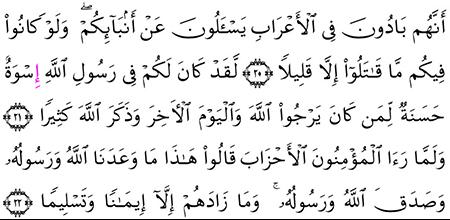 أَنَّهُم بَادُونَ فِى ٱلۡأَعۡرَابِ يَسۡـَٔلُونَ عَنۡ أَنۢبَآئِكُمۡۖ وَلَوۡ كَانُواْ
فِيكُم مَّا قَٰتَلُوٓاْ إِلَّا قَلِيلٗا ٢٠ لَّقَدۡ كَانَ لَكُمۡ فِى رَسُولِ ٱللَّهِ إِسۡوَةٌ
حَسَنَةٞ لِّمَن كَانَ يَرۡجُواْ ٱللَّهَ وَٱلۡيَوۡمَ ٱلۡأٓخِرَ وَذَكَرَ ٱللَّهَ كَثِيرٗا ٢١
وَلَمَّا رَءَا ٱلۡمُؤۡمِنُونَ ٱلۡأَحۡزَابَ قَالُواْ هَٰذَا مَا وَعَدَنَا ٱللَّهُ وَرَسُولُهُۥ
وَصَدَقَ ٱللَّهُ وَرَسُولُهُۥۚ وَمَا زَادَهُمۡ إِلَّآ إِيمَٰنٗا وَتَسۡلِيمٗا ٢٢